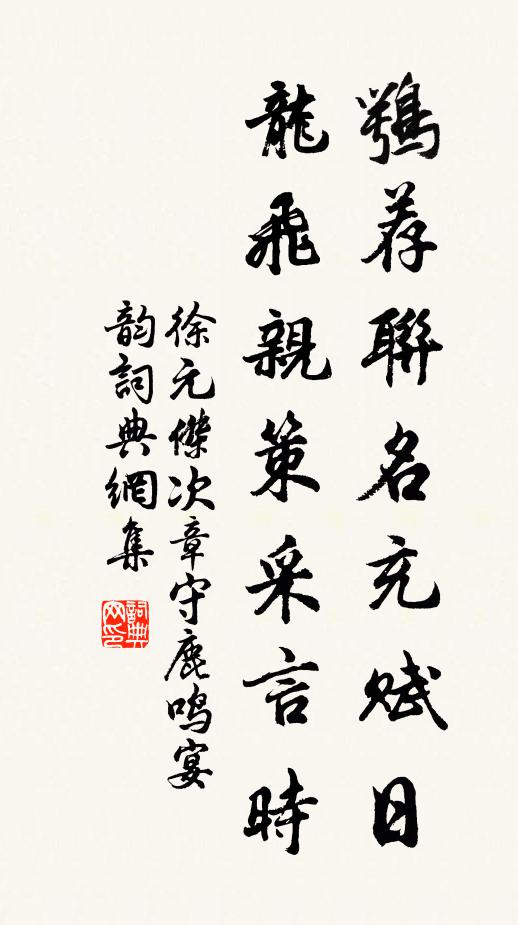 鶚荐聯名充赋日
龍飛親策采言時
徐元傑次章守鹿鸣宴
韵詞典網集
詞典网印